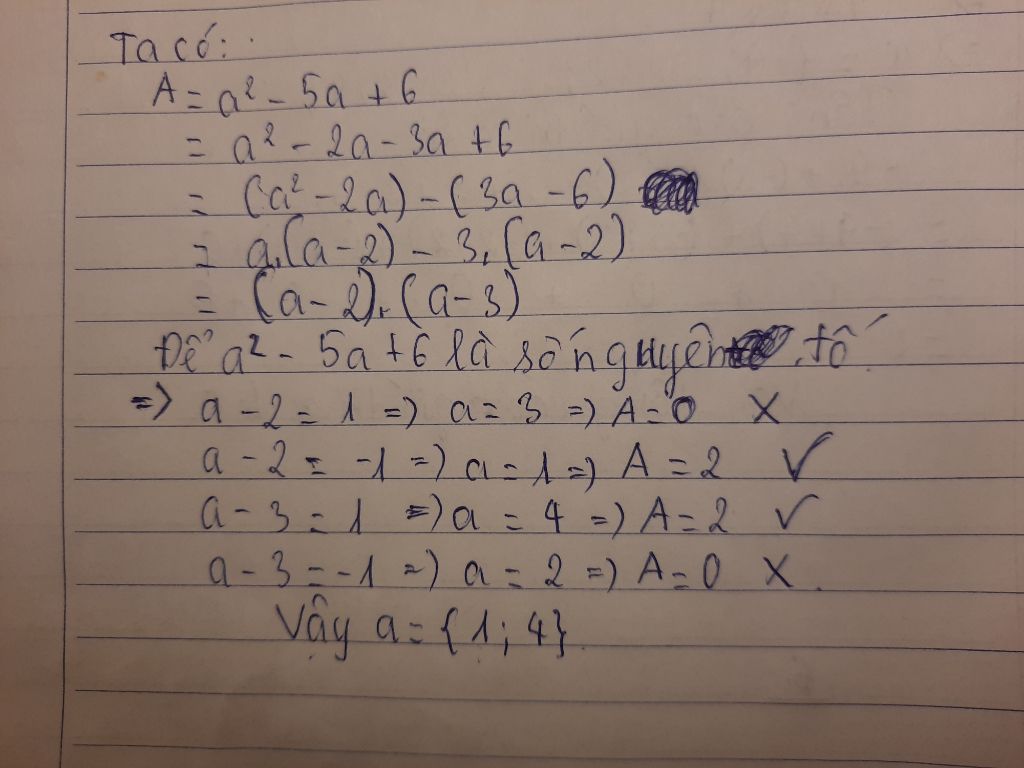 Ta có:
A = a² - 5a + 6
= a² - 2a - 3a + 6
= (a² - 2a) - (3a - 6)
= a.(a - 2) - 3.(a - 2)
= (a - 2).(a - 3)
Để a² - 5a + 6 là số nguyên tố
=> a - 2 = 1 => a = 3 => A = 0 X
a - 2 = -1 => a = 1 => A = 2 ✓
a - 3 = 1 => a = 4 => A = 2 ✓
a - 3 = -1 => a = 2 => A = 0 X.
Vậy a = {1; 4}